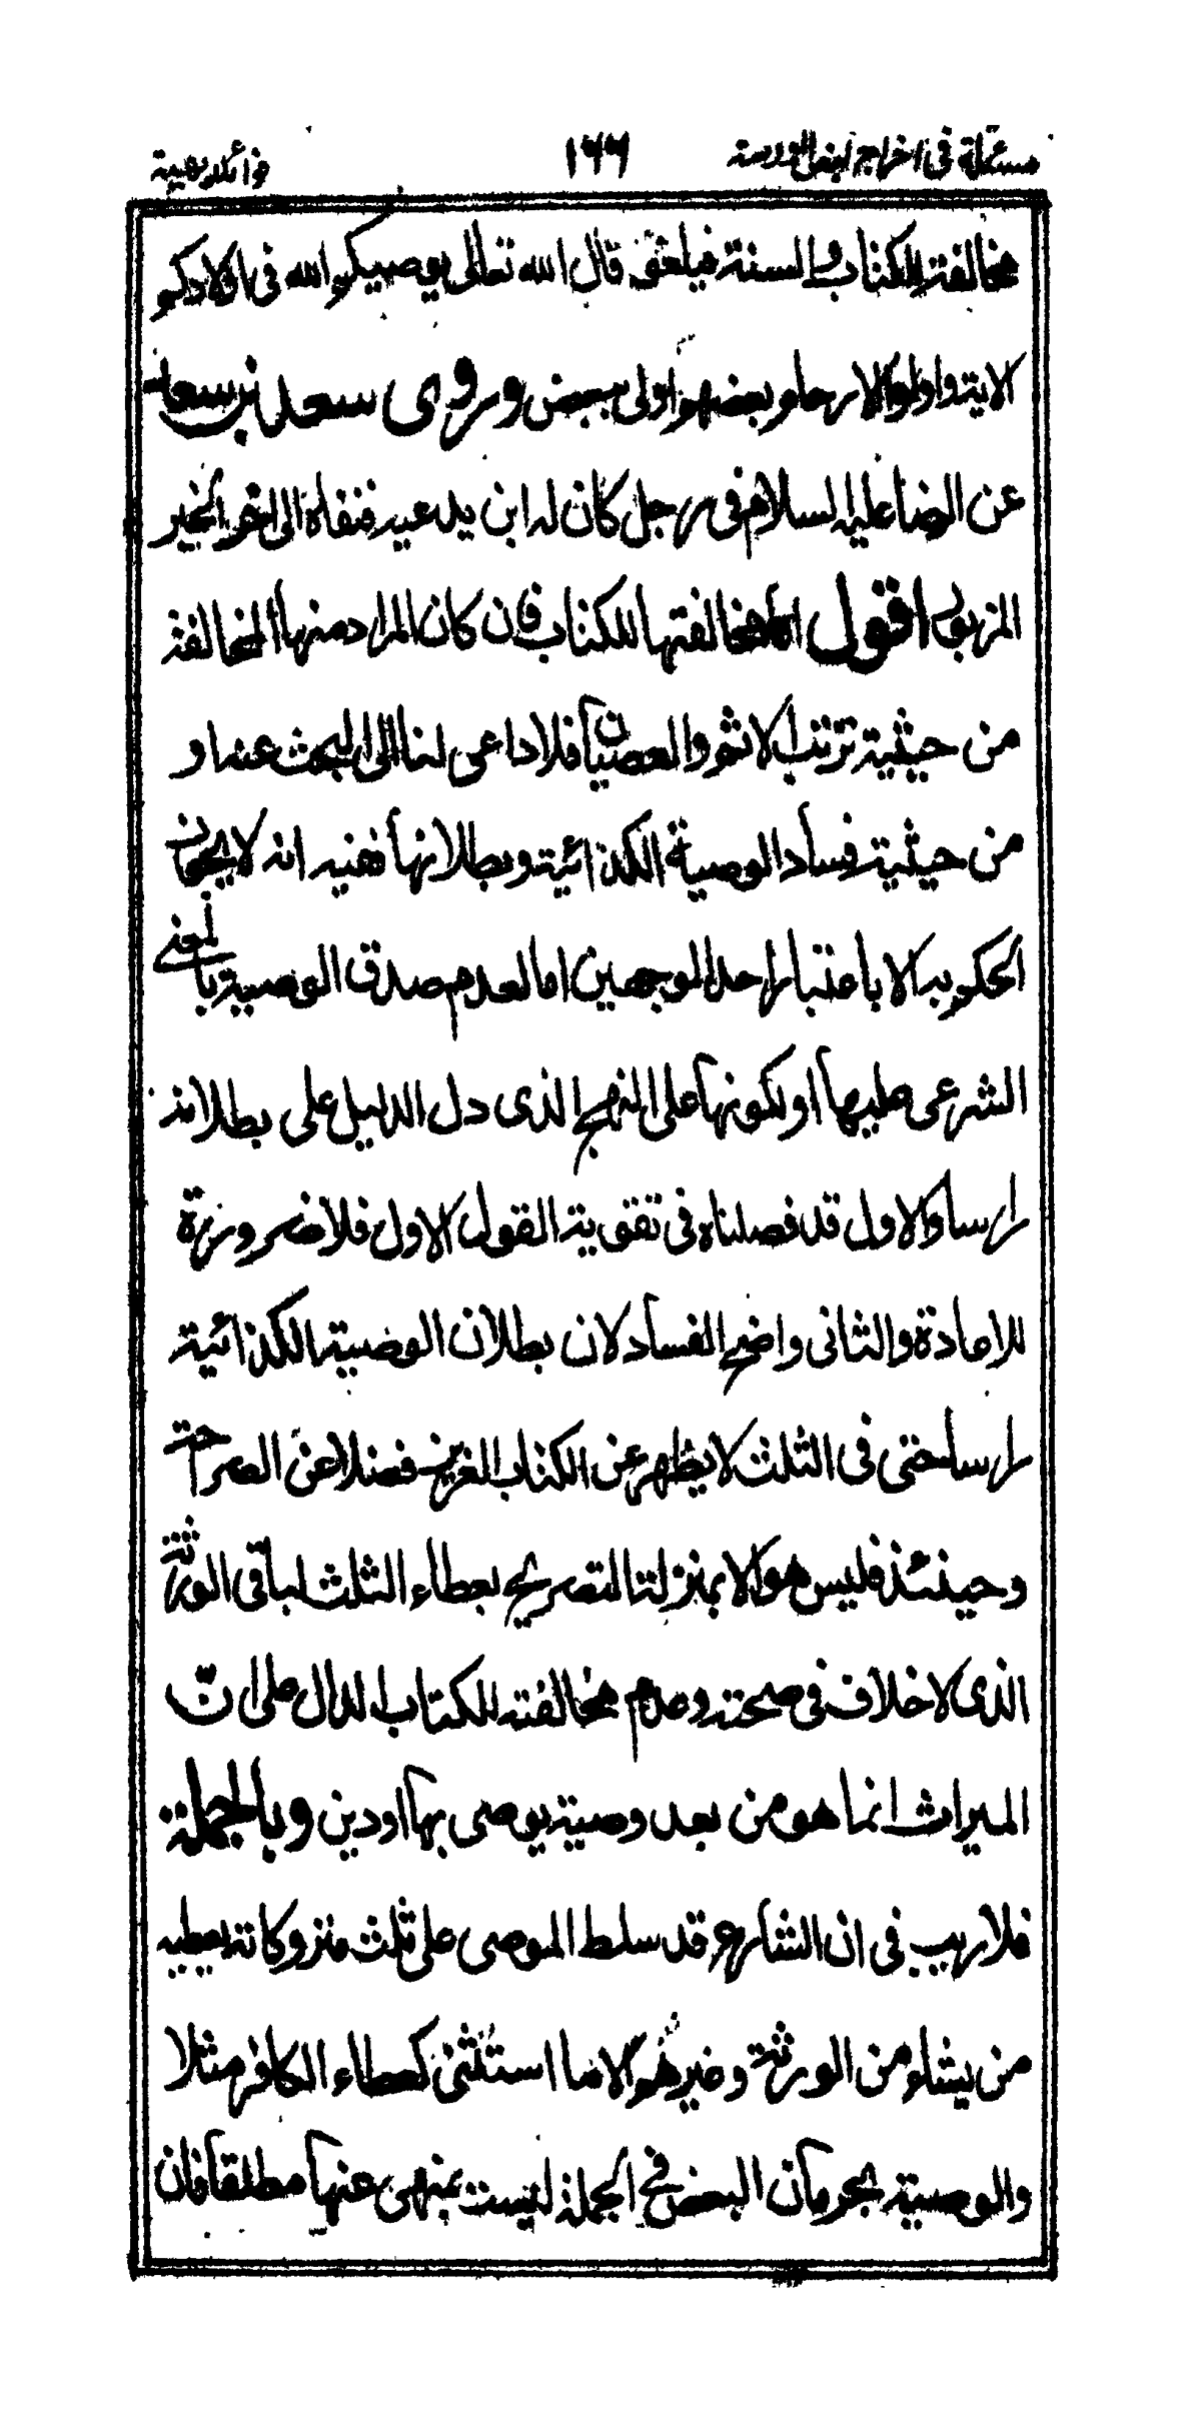 مسئلة فى اخراج بعض الورثة ١٦٦ فوائد بهية
مخالفة للكتاب والسنة فيلغى قال الله تعالى يوصيكم الله فى اولادكم
الاية واولوا الارحام بعضهم اولى ببعض وروى سعد بن سعد
عن الرضا عليه السلام فى رجل كان له ابن يدعيه فنفاه الى اخر الخبر
المزبور اقول اما مخالفتها للكتاب فان كان المراد منها المخالفة
من حيثية ترتب الاثم والعصيان فلا داعى لنا الى البحث عنه او
من حيثية فساد الوصية الكذائية وبطلانها ففيه انه لا يجوز
الحكم به الا باعتبار احد الوجهين اما لعدم صدق الوصية بالمعنى
الشرعى عليها او لكونها على النهج الذى دل الدليل على بطلانه
راسا والاول قد فصلناه فى تقوية القول الاول فلا ضرورة
للاعادة والثانى واضح الفساد لان بطلان الوصية الكذائية
راسا حتى فى الثلث لا يظهر عن الكتاب العزيز فضلا عن الصراحة
وحينئذ فليس هو الا بمنزلة التصريح بعطاء الثلث لباقى الورثة
الذى لا خلاف فى صحته وعدم مخالفته للكتاب الدال على انّ
الميراث انما هو من بعد وصية يوصى بها او دين وبالجملة
فلا ريب فى ان الشارع قد سلط الموصى على ثلث متروكاته يعطيه
من يشاء من الورثة وغيرهم الا ما استثنى كعطاء الكافر مثلا
والوصية بحرمان البعض فى الجملة ليست بمنهى عنها مطلقا فان